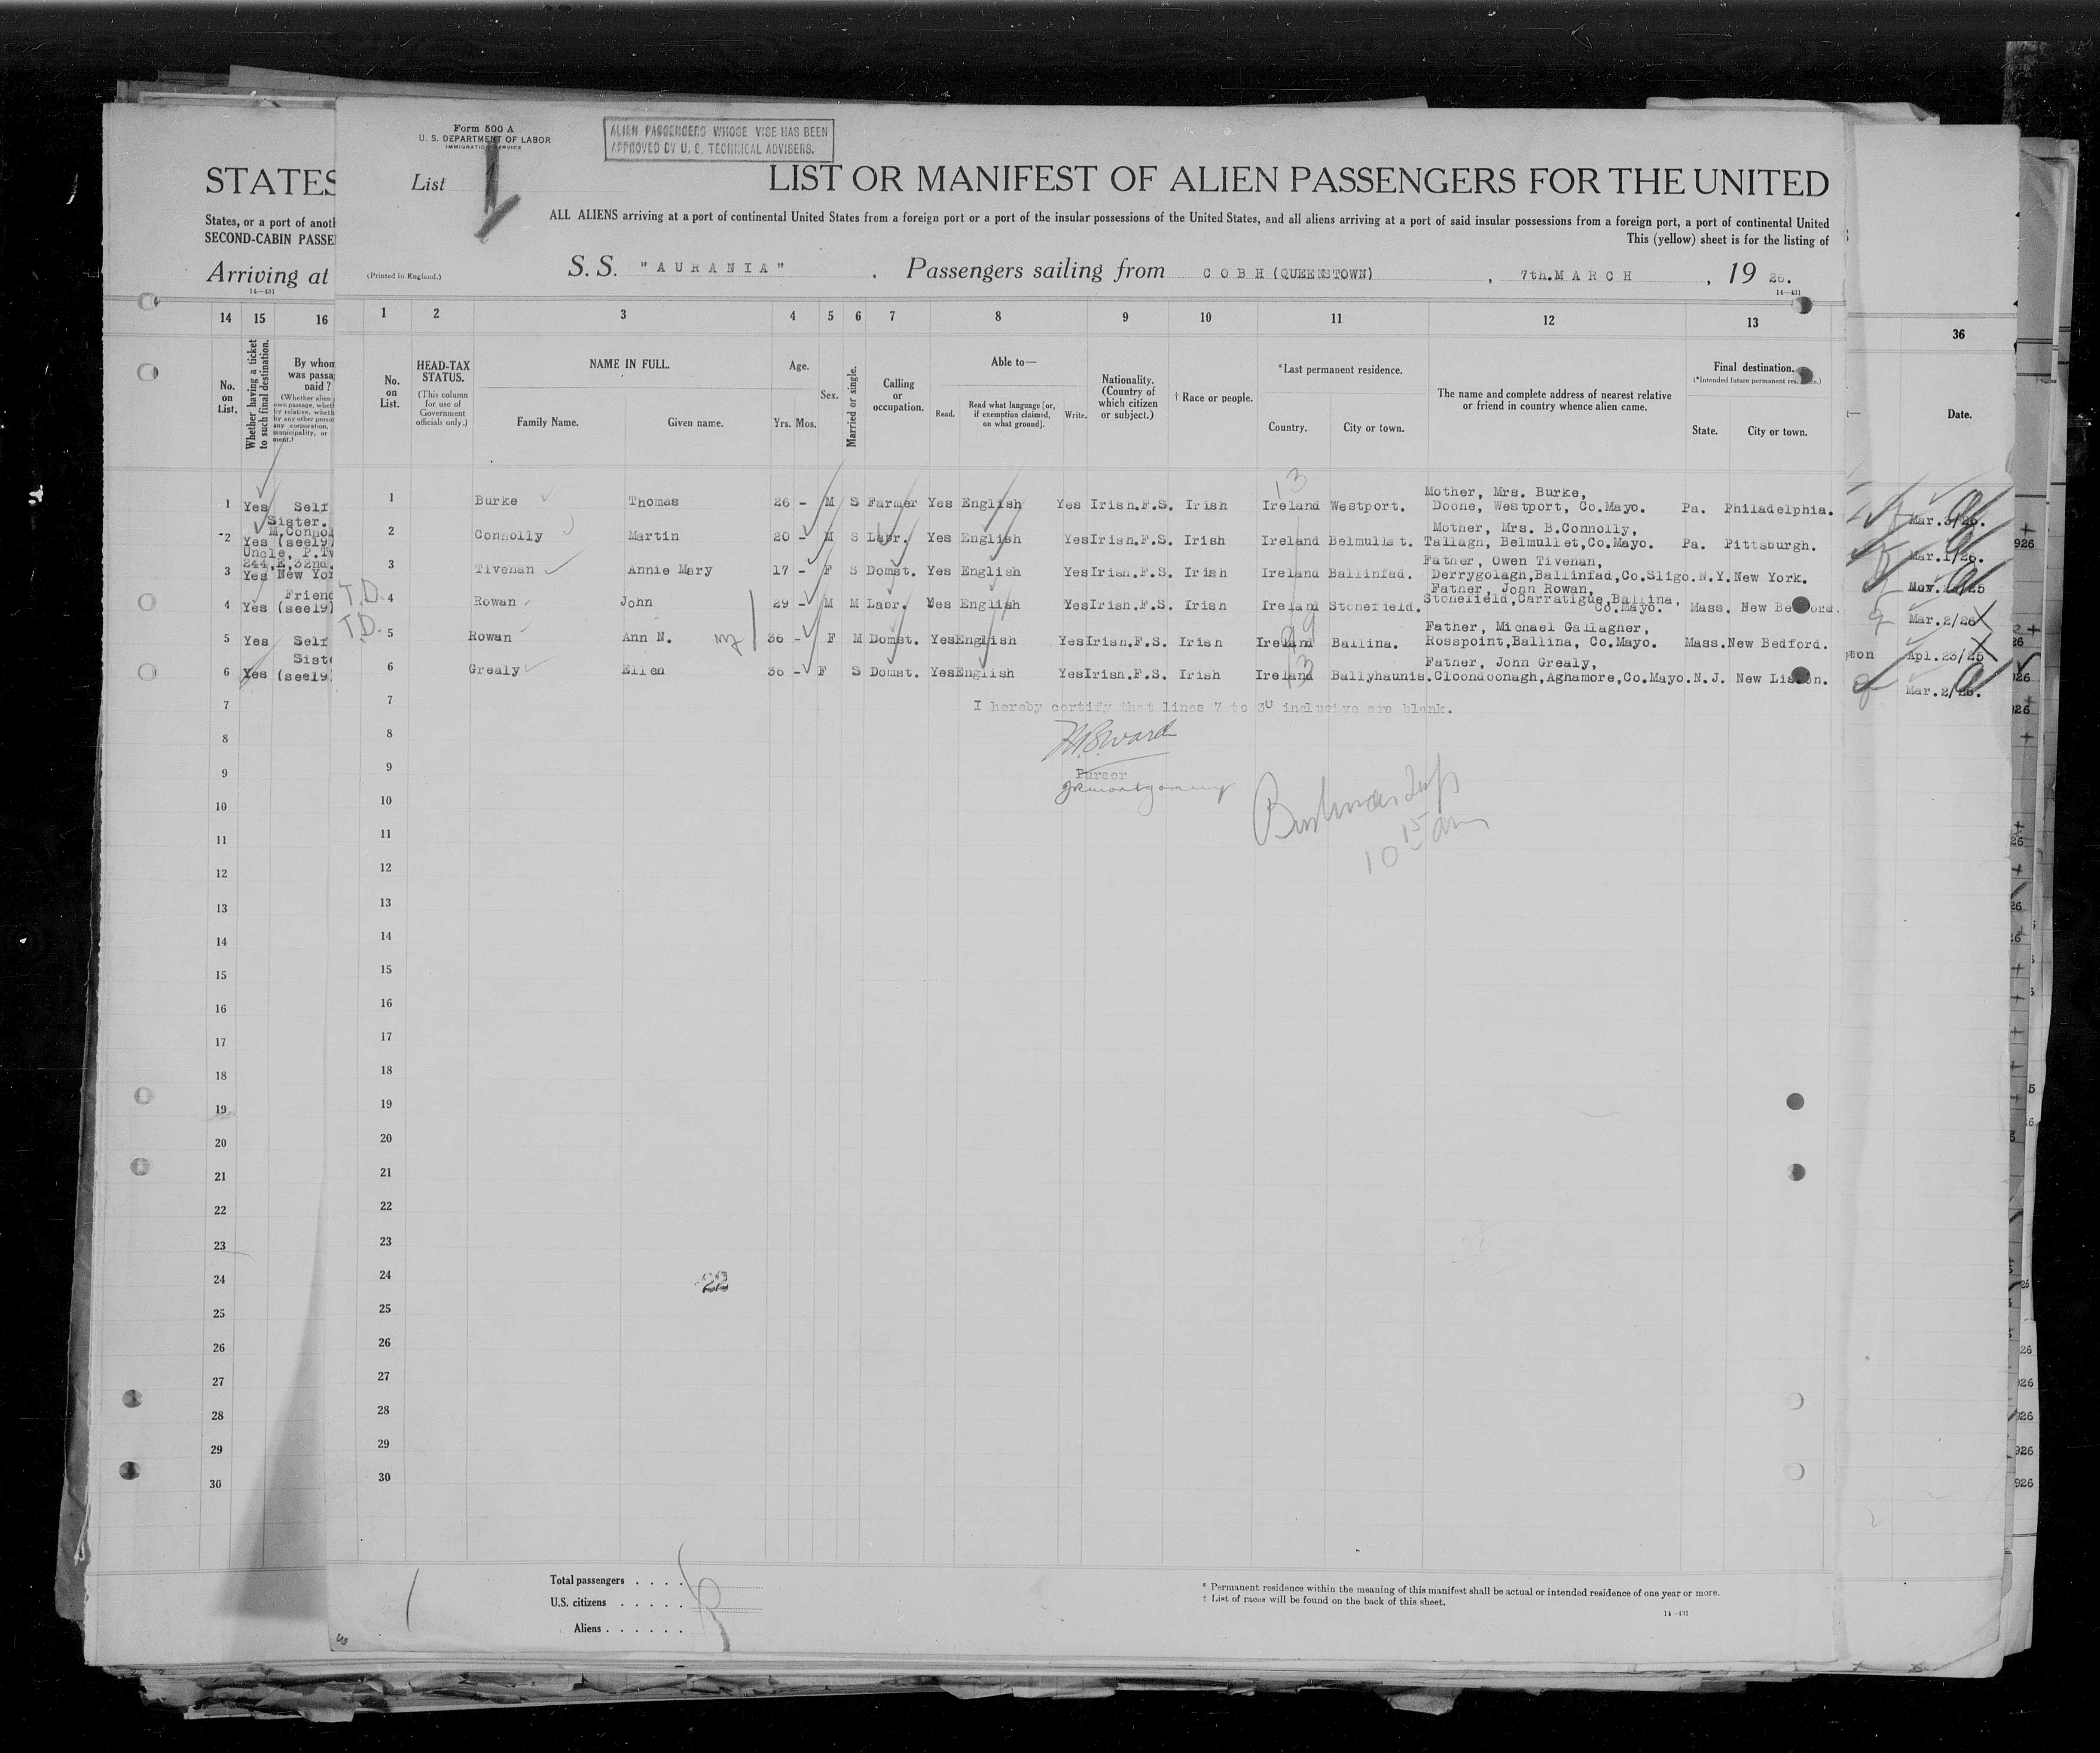 Form 500 A
U. S. DEPARTMENT OF LABOR
IMMIGRATION SERVICE
ALIEN PASSENGERS WHOSE VISE HAS BEEN
APPROVED BY U. S. TECHNICAL ADVISERS.
STATES
List 1
LIST OR MANIFEST OF ALIEN PASSENGERS FOR THE UNITED
States, or a port of anoth
SECOND-CABIN PASSE
ALL ALIENS arriving at a port of continental United States from a foreign port or a port of the insular possessions of the United States, and all aliens arriving at a port of said insular possessions from a foreign port, a port of continental United
This (yellow) sheet is for the listing of
Arriving at
14—431
(Printed in England.)
S. S. "AURANIA" , Passengers sailing from COBH (QUEENSTOWN) , 7th.MARCH , 19 26.
14—431
14 15 16 1 2 3 4 5 6 7 8 9 10 11 12 13 36
No. on List.
Whether having a ticket to such final destination.
By whom was passa paid?
No. on List.
HEAD-TAX STATUS.
(This column for use of Government officials only.)
NAME IN FULL.
Family Name.
Given name.
Age.
Yrs. Mos.
Sex.
Married or single.
Calling or occupation.
Able to—
Read.
Read what language [or, if exemption claimed, on what ground].
Write.
Nationality. (Country of which citizen or subject.)
† Race or people.
*Last permanent residence.
Country.
City or town.
The name and complete address of nearest relative or friend in country whence alien came.
Final destination.
State.
City or town.
Date.
13
Mother, Mrs. Burke,
1 Yes Self 1 Burke Thomas 26 - M S Farmer Yes English Yes Irish.F.S. Irish Ireland Westport. Doone, Westport, Co.Mayo. Pa. Philadelphia. Mar.3/26.
Sister.
M.Connol
Mother, Mrs. B.Connolly,
2 Yes (see19) 2 Connolly Martin 20 - M S Labr. Yes English Yes Irish.F.S. Irish Ireland Belmullet. Tallagh, Belmullet,Co.Mayo. Pa. Pittsburgh. Mar.1/26.
Uncle, P.Tv
244,E,32nd.
Father, Owen Tivenan,
3 Yes New Yor 3 Tivenan Annie Mary 17 - F S Domst. Yes English Yes Irish.F.S. Irish Ireland Ballinfad. Derrygolagh,Ballinfad,Co.Sligo. N.Y. New York.
Friend
T.D.
Father, John Rowan,
4 Yes (see19) 4 Rowan John 29 - M M Labr. Yes English Yes Irish.F.S. Irish Ireland Stonefield. Stonefield,Carratigue,Ballina, Co.Mayo. Mass. New Bedford. Mar.2/26
T.D.
Father, Michael Gallagher,
5 Yes Self 5 Rowan Ann N. 36 - F M Domst. Yes English Yes Irish.F.S. Irish Ireland Ballina. Rosspoint,Ballina, Co.Mayo. Mass. New Bedford. Apl.23/25
Siste
13
Father, John Grealy,
6 Yes (see19) 6 Grealy Ellen 36 - F S Domst. Yes English Yes Irish.F.S. Irish Ireland Ballyhaunis. Cloondoonagh,Aghamore,Co.Mayo. N.J. New Lisbon. Mar.2/26.
7 7 I hereby certify that lines 7 to 30 inclusive are blank.
8 8
9 9 Purser
10 10
10 15 am
11 11
12 12
13 13
14 14
15 15
16 16
17 17
18 18
19 19
20 20
21 21
22 22
23 23
24 24 22
25 25
26 26
27 27
28 28
29 29
30 30
Total passengers . . . .
U.S. citizens . . . . .
Aliens . . . . . .
* Permanent residence within the meaning of this manifest shall be actual or intended residence of one year or more.
† List of races will be found on the back of this sheet.
14—431